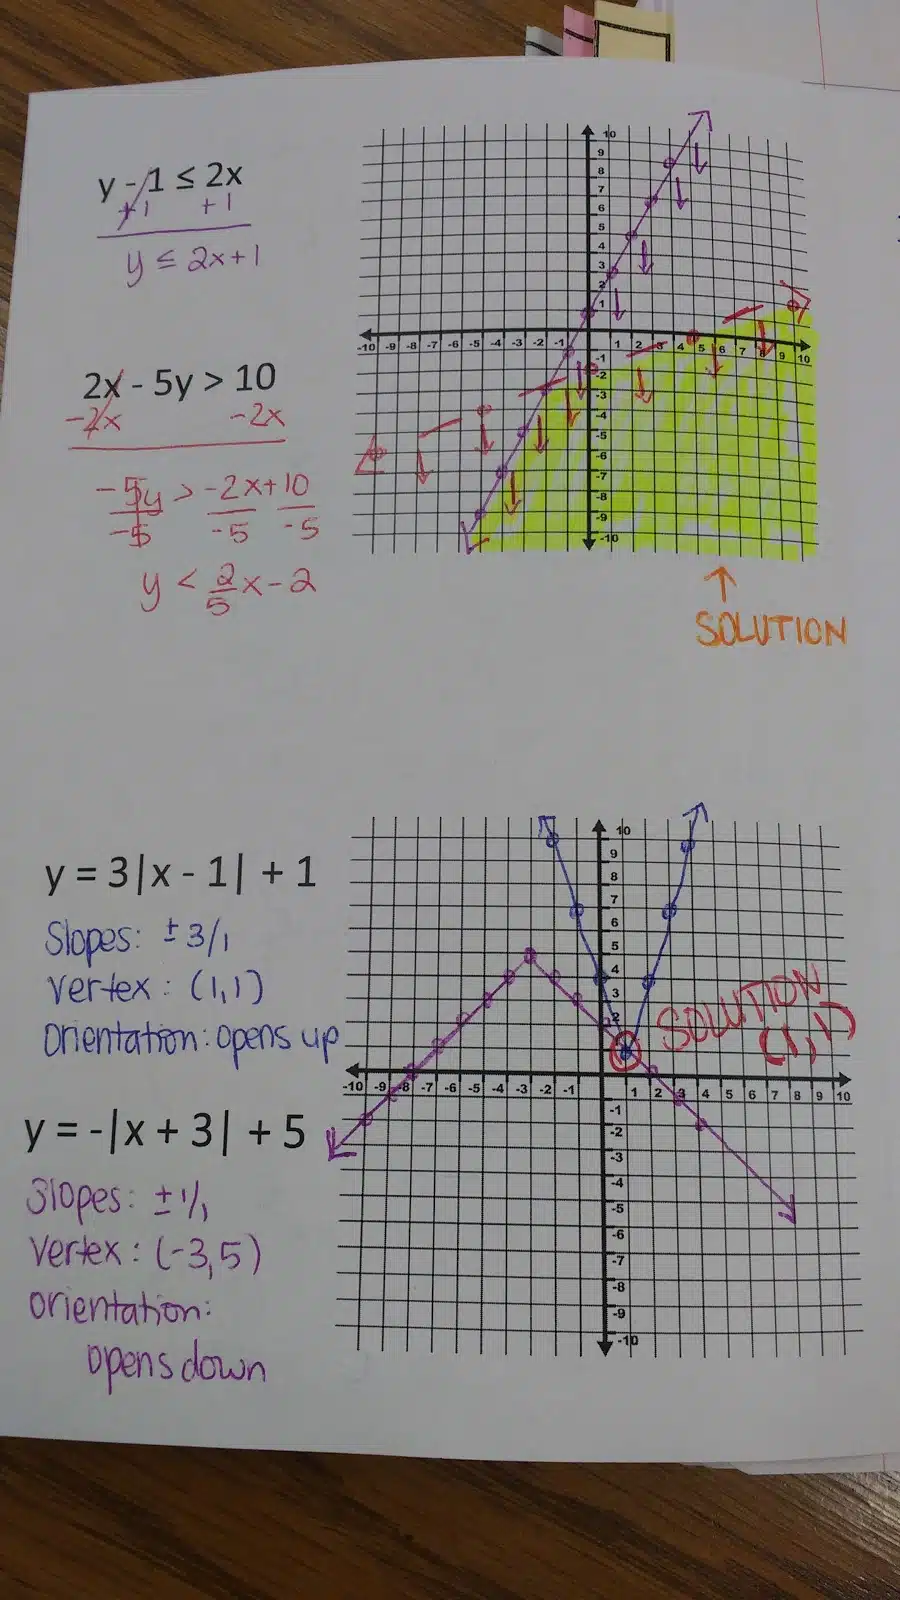 y - 1 ≤ 2x
+1 +1
y ≤ 2x+1
2x - 5y > 10
-2x -2x
-5y > -2x+10
-5 -5 -5
y < 2/5 x - 2
10
9
8
7
6
5
4
3
2
1
-10 -9 -8 -7 -6 -5 -4 -3 -2 -1 1 2 3 4 5 6 7 8 9 10
-1
-2
-3
-4
-5
-6
-7
-8
-9
-10
SOLUTION
y = 3|x - 1| + 1
Slopes: ± 3/1
Vertex: (1,1)
Orientation: opens up
y = -|x + 3| + 5
Slopes: ± 1/1
Vertex: (-3,5)
orientation:
opens down
10
9
8
7
6
5
4
3
2
SOLUTION
(1,1)
-10 -9 -8 -7 -6 -5 -4 -3 -2 -1 1 2 3 4 5 6 7 8 9 10
-1
-2
-3
-4
-5
-6
-7
-8
-9
-10